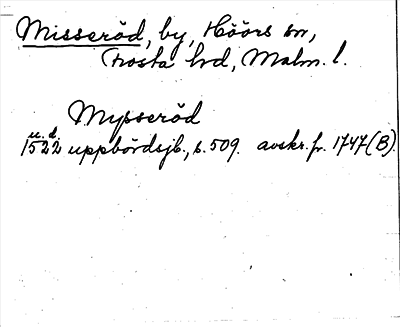 Misseröd, by, Höörs sn,
Frosta hd, Malm. l.
Mysseröd
u. d.
1522 uppbördsjb., s. 509. avskr. fr. 1747 (B).